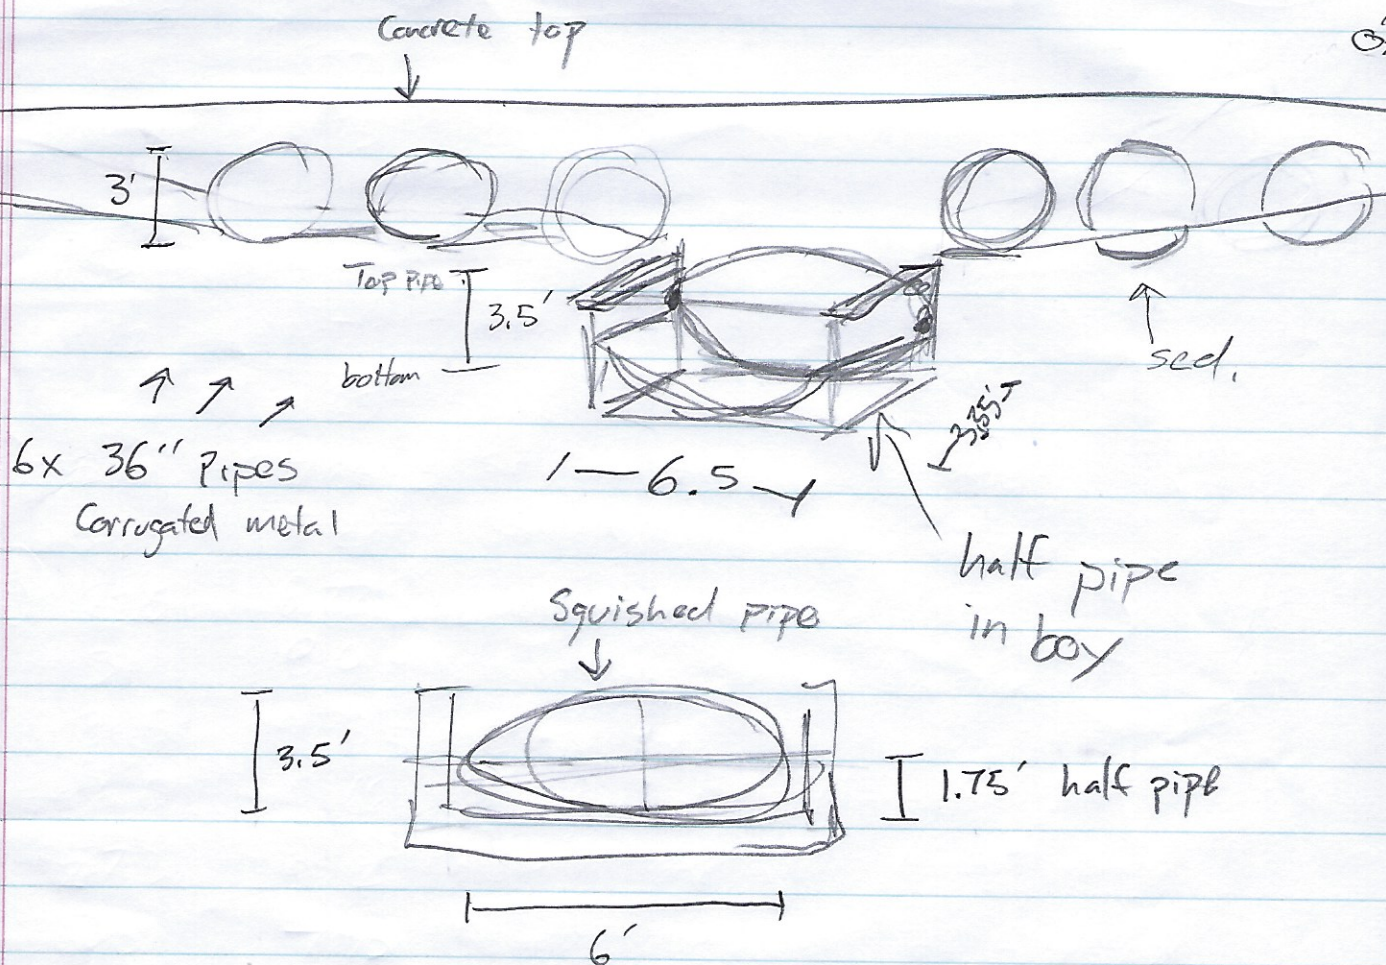 Concrete top
3'
Top pipe
3.5'
bottom
sed.
6x 36" pipes
Corrugated metal
6.5
half pipe
in box
Squished pipe
3.5'
1.75' half pipe
6'